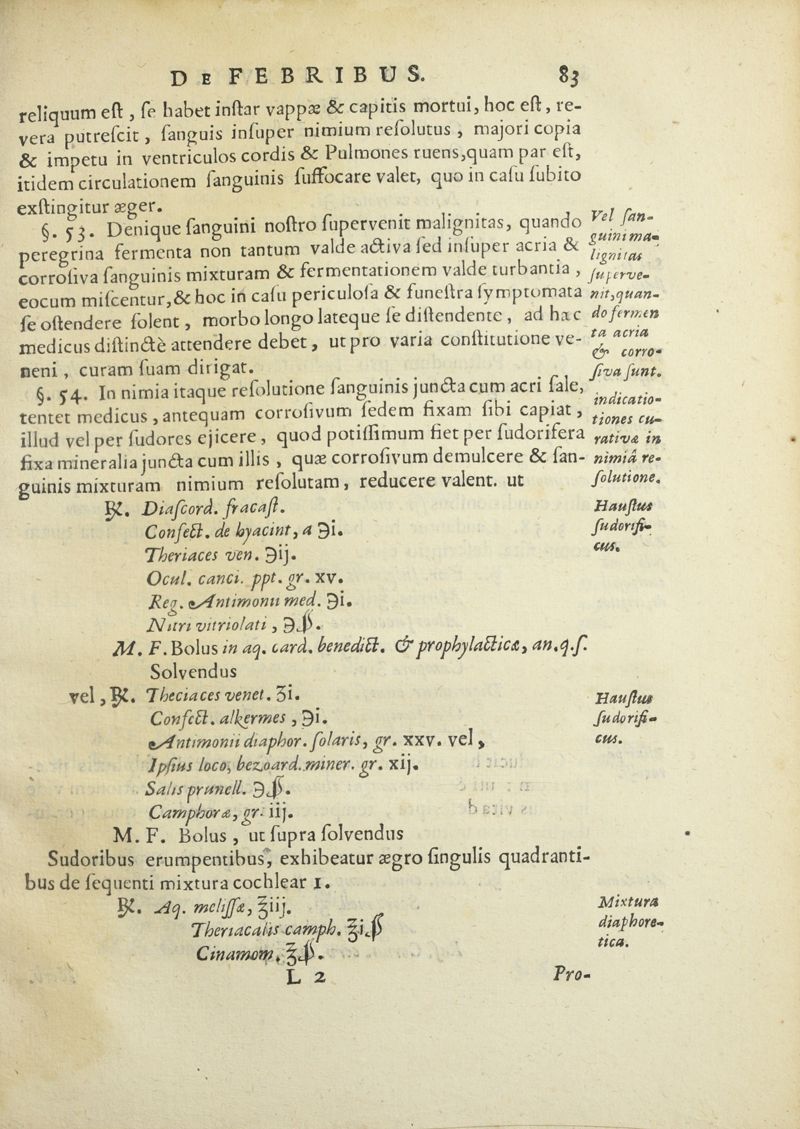 DE FEBRIBUS. 83
reliquum eſt, ſe habet inſtar vappæ & capitis mortui, hoc eſt, re-
vera putreſcit, ſanguis inſuper nimium reſolutus, majori copia
& impetu in ventriculos cordis & Pulmones ruens, quam par eſt,
itidem circulationem ſanguinis ſuffocare valet, quo in caſu ſubito
exſtingitur æger.
§. 53. Denique ſanguini noſtro ſupervenit malignitas, quando
peregrina fermenta non tantum valde activa ſed inſuper acria &
corroſiva ſanguinis mixturam & fermentationem valde turbantia,
eocum miſcentur, & hoc in caſu periculoſa & funeſtra ſymptomata
ſe oſtendere ſolent, morbo longo lateque ſe diſtendente, ad hæc
medicus diſtinctè attendere debet, ut pro varia conſtitutione ve-
neni, curam ſuam dirigat.
Vel ſan-
guini ma-
lignitas
ſuperve-
nit, quan-
do fermen
ta acria
& corro-
ſiva ſunt.
§. 54. In nimia itaque reſolutione ſanguinis juncta cum acri ſale,
tentet medicus, antequam corroſivum ſedem fixam ſibi capiat,
illud vel per ſudores ejicere, quod potiſſimum fiet per ſudorifera
fixa mineralia juncta cum illis, quæ corroſivum demulcere & ſan-
guinis mixturam nimium reſolutam, reducere valent. ut
indicatio-
tiones cu-
rativæ in
nimiâ re-
ſolutione.
℞. Diaſcord. fracaſt.
Confect. de hyacint, a ℈i.
Theriaces ven. ℈ij.
Ocul. canci. ppt. gr. xv.
Reg. Antimonii med. ℈i.
Nitri vitriolati, ℈ß.
M. F. Bolus in aq. card. benedict. & prophylacticæ, an. q. ſ.
Solvendus
Hauſtus
ſudorifi-
cus.
vel, ℞. Theciaces venet. ʒi.
Confect. alkermes, ℈i.
Antimonii diaphor. ſolaris, gr. xxv. vel,
Ipſius loco, bezoard. miner. gr. xij.
Salis prunell. ℈ß.
Camphoræ, gr. iij.
M. F. Bolus, ut ſupra ſolvendus
Hauſtus
ſudorifi-
cus.
Sudoribus erumpentibus, exhibeatur ægro ſingulis quadranti-
bus de ſequenti mixtura cochlear 1.
℞. Aq. meliſſæ, ℥iij.
Theriacalis camph. ℥iß
Cinamom. ℥ß.
Mixtura
diaphore-
tica.
L 2 Pro-